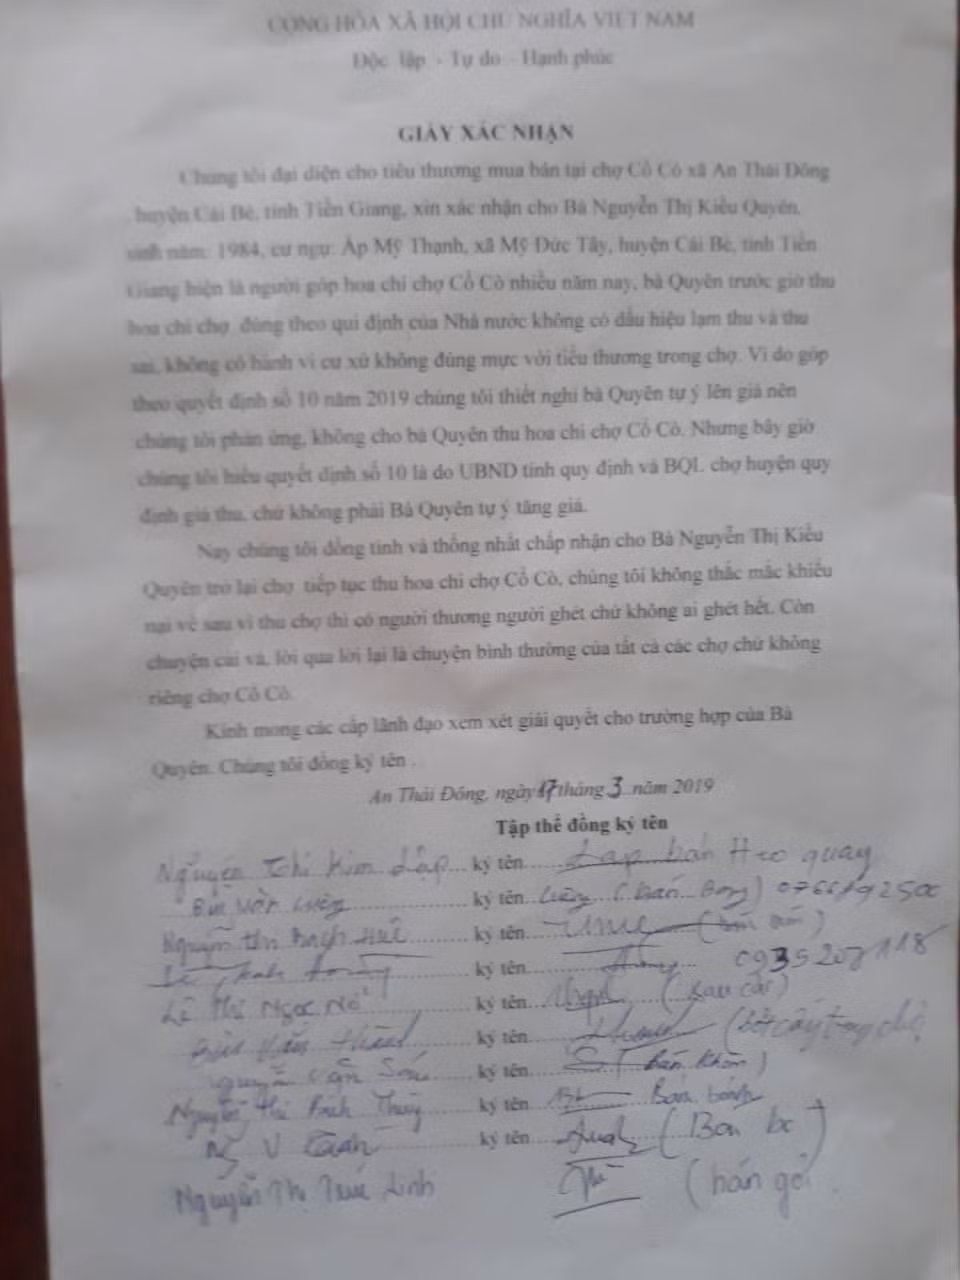 CỘNG HÒA XÃ HỘI CHỦ NGHĨA VIỆT NAM
Độc lập - Tự do - Hạnh phúc
GIẤY XÁC NHẬN
Chúng tôi đại diện cho tiểu thương mua bán tại chợ Cổ Cò xã An Thái Đông
huyện Cái Bè, tỉnh Tiền Giang, xin xác nhận cho Bà Nguyễn Thị Kiều Quyên,
sinh năm: 1984, cư ngụ: Ấp Mỹ Thạnh, xã Mỹ Đức Tây, huyện Cái Bè, tỉnh Tiền
Giang hiện là người góp hoa chi chợ Cổ Cò nhiều năm nay, bà Quyên trước giờ thu
hoa chi chợ đúng theo qui định của Nhà nước không có dấu hiệu lạm thu và thu
sai, không có hành vi cư xử không đúng mực với tiểu thương trong chợ. Vì do góp
theo quyết định số 10 năm 2019 chúng tôi thiết nghĩ bà Quyên tự ý lên giá nên
chúng tôi phản ứng, không cho bà Quyên thu hoa chi chợ Cổ Cò. Nhưng bây giờ
chúng tôi hiểu quyết định số 10 là do UBND tỉnh quy định và BQL chợ huyện quy
định giá thu, chứ không phải Bà Quyên tự ý tăng giá.
Nay chúng tôi đồng tình và thống nhất chấp nhận cho Bà Nguyễn Thị Kiều
Quyên trở lại chợ tiếp tục thu hoa chi chợ Cổ Cò, chúng tôi không thắc mắc khiếu
nại về sau vì thu chợ thì có người thương người ghét chứ không ai ghét hết. Còn
chuyện cải vả, lời qua lời lại là chuyện bình thường của tất cả các chợ chứ không
riêng chợ Cổ Cò.
Kính mong các cấp lãnh đạo xem xét giải quyết cho trường hợp của Bà
Quyên. Chúng tôi đồng ký tên .
An Thái Đông, ngày 17 tháng 3 năm 2019
Tập thể đồng ký tên
Nguyễn Thị Kim Lập ... ký tên ... Lap bán Heo quay
Bùi Văn ... ký tên ...
Nguyễn thị Bạch Huê ... ký tên ...
Lê ... ký tên ... 0935207118
Lê Thị Ngọc Nở ... ký tên ... (Rau cải)
Văn ... ký tên ...
Nguyễn Văn Sáu ... ký tên ... Bán
Nguyễn Thị Bích Thủy ... ký tên ... Bán bánh
V ... ký tên ... (Ban bò)
Nguyễn Thị Trúc Linh (bán gỏi.